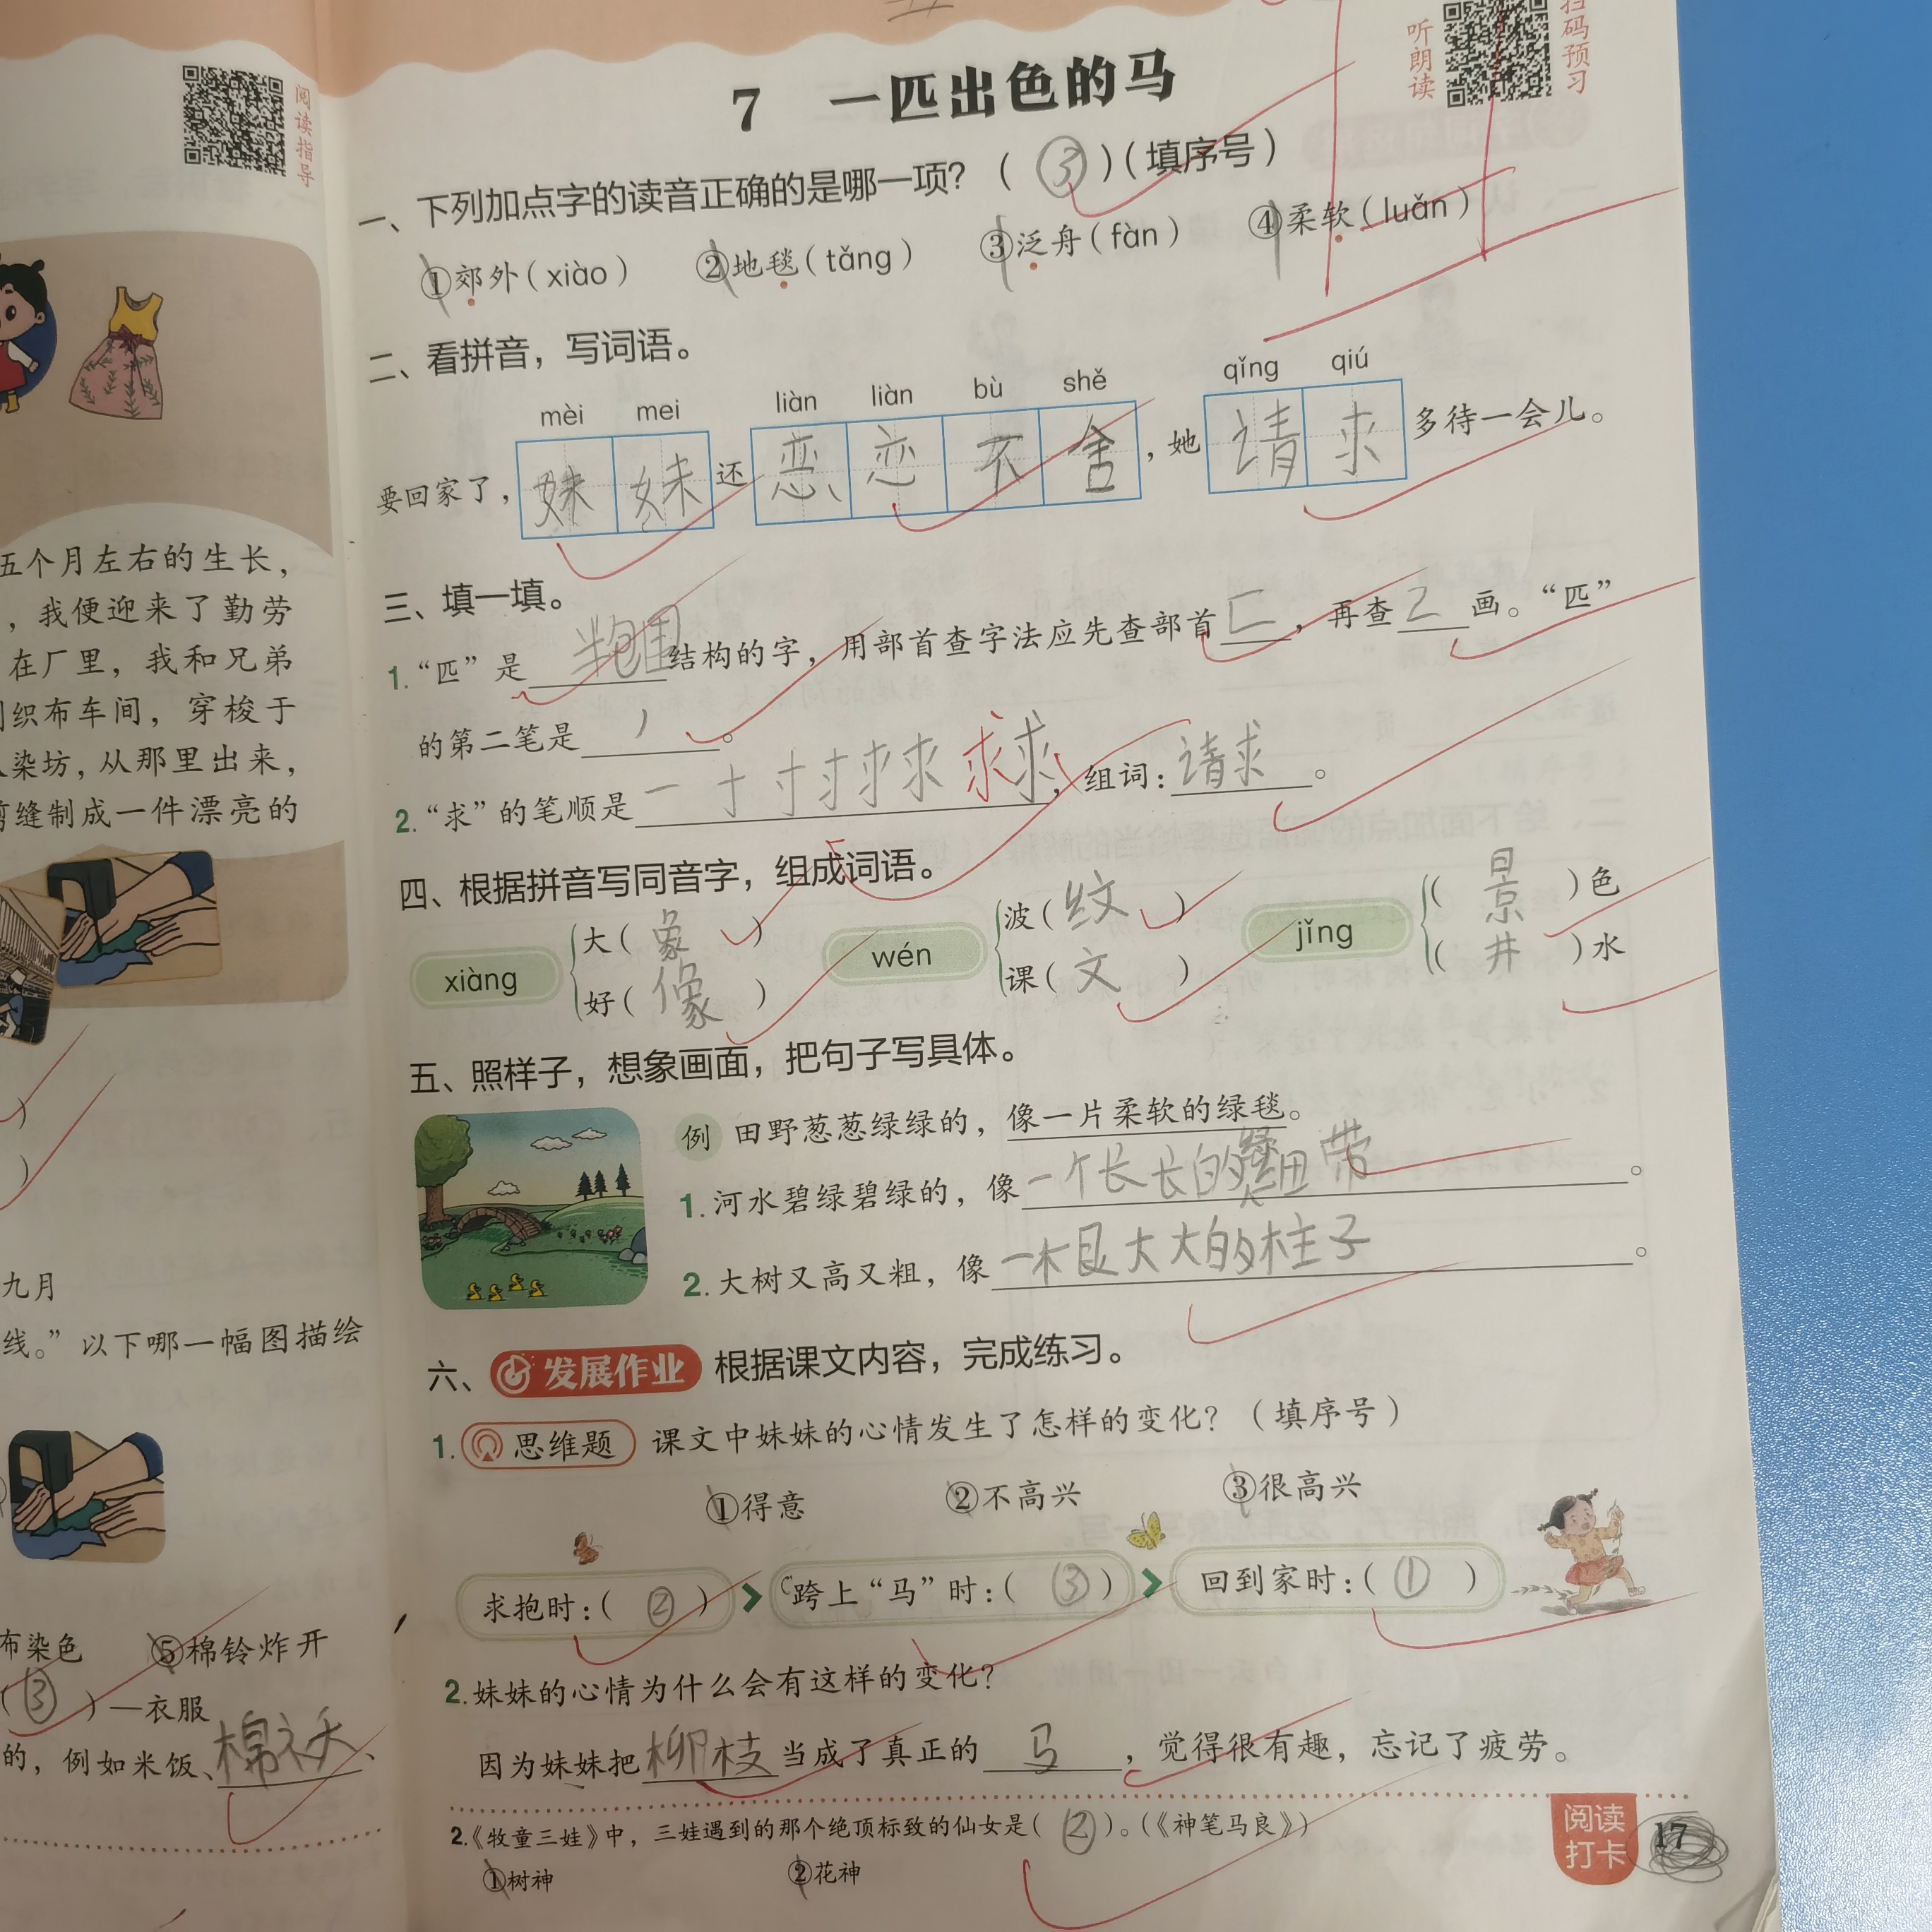 阅读指导
五个月左右的生长，
，我便迎来了勤劳
在厂里，我和兄弟
织布车间，穿梭于
染坊，从那里出来，
缝制成一件漂亮的
）
）
九月
线。”以下哪一幅图描绘
布染色 ⑤棉铃炸开
（③）—衣服
的，例如米饭、棉袄、
听朗读
扫码预习
7 一匹出色的马
一、下列加点字的读音正确的是哪一项？（③）（填序号）
①郊外（xiào） ②地毯（tǎng） ③泛舟（fàn） ④柔软（luǎn）
二、看拼音，写词语。
mèi mei liàn liàn bù shě qǐng qiú
要回家了，妹妹还恋恋不舍，她请求多待一会儿。
三、填一填。
1.“匹”是半包围结构的字，用部首查字法应先查部首匚，再查2画。“匹”
的第二笔是丿。
2.“求”的笔顺是一十寸寸求求求求，组词：请求。
四、根据拼音写同音字，组成词语。
xiàng 大（象） wén 波（纹） jǐng （景）色
好（像） 课（文） （井）水
五、照样子，想象画面，把句子写具体。
例 田野葱葱绿绿的，像一片柔软的绿毯。
1.河水碧绿碧绿的，像一个长长的绿丝带。
2.大树又高又粗，像一根大大的柱子。
六、发展作业 根据课文内容，完成练习。
1.思维题 课文中妹妹的心情发生了怎样的变化？（填序号）
①得意 ②不高兴 ③很高兴
求抱时：（②） > 跨上“马”时：（③） > 回到家时：（①）
2.妹妹的心情为什么会有这样的变化？
因为妹妹把柳枝当成了真正的马，觉得很有趣，忘记了疲劳。
2.《牧童三娃》中，三娃遇到的那个绝顶标致的仙女是（②）。（《神笔马良》）
①树神 ②花神
阅读打卡 17